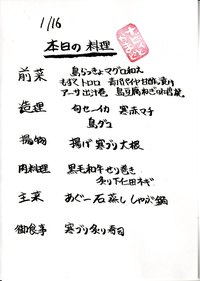 1/16
本日の料理
前菜 島らっきょマグロ和え
もずくトロロ 青パパイヤ甘酢漬け
アーサ出汁巻 島豆腐ねぎ味噌焼
造理 旬セーイカ 寒赤マチ
島ダコ
揚物 揚げ寒ブリ大根
肉料理 黒毛和牛せり巻き
炙り下仁田ネギ
主菜 あぐー石蒸ししゃぶ鍋
御食事 寒ブリ炙り寿司